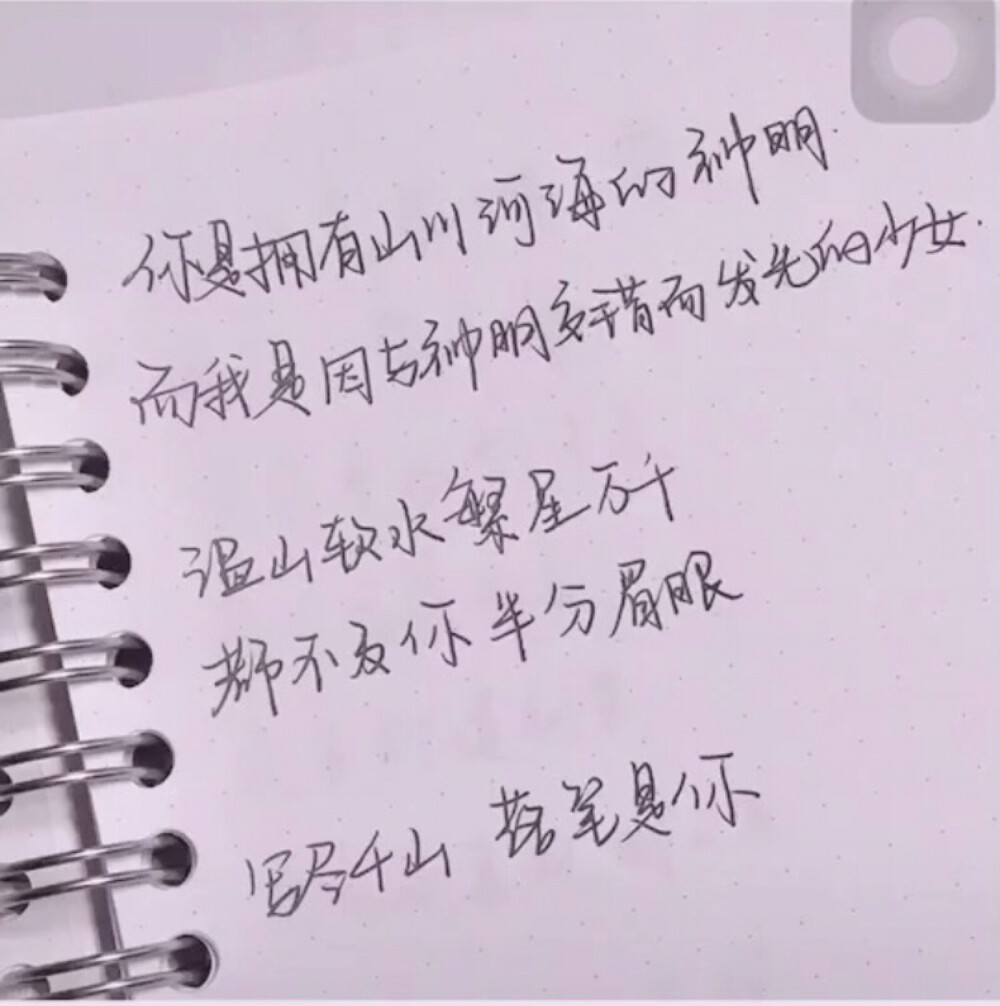 你是拥有山川河海的神明.
而我是因与神明交错而发光的少女.
温山软水繁星万千
都不及你半分眉眼
写尽千山 落笔是你